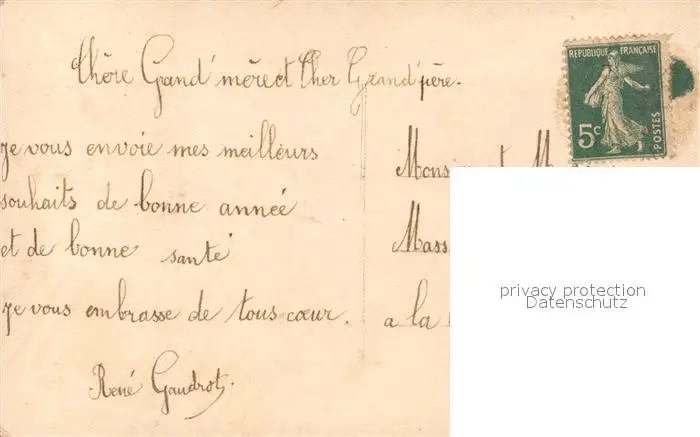 Chère Grand'mère et Cher Grand'père.
je vous envoie mes meilleurs
souhaits de bonne année
et de bonne santé
je vous embrasse de tous cœur.
René Gaudrot.
REPUBLIQUE FRANÇAISE
5c
POSTES
a la
privacy protection
Datenschutz